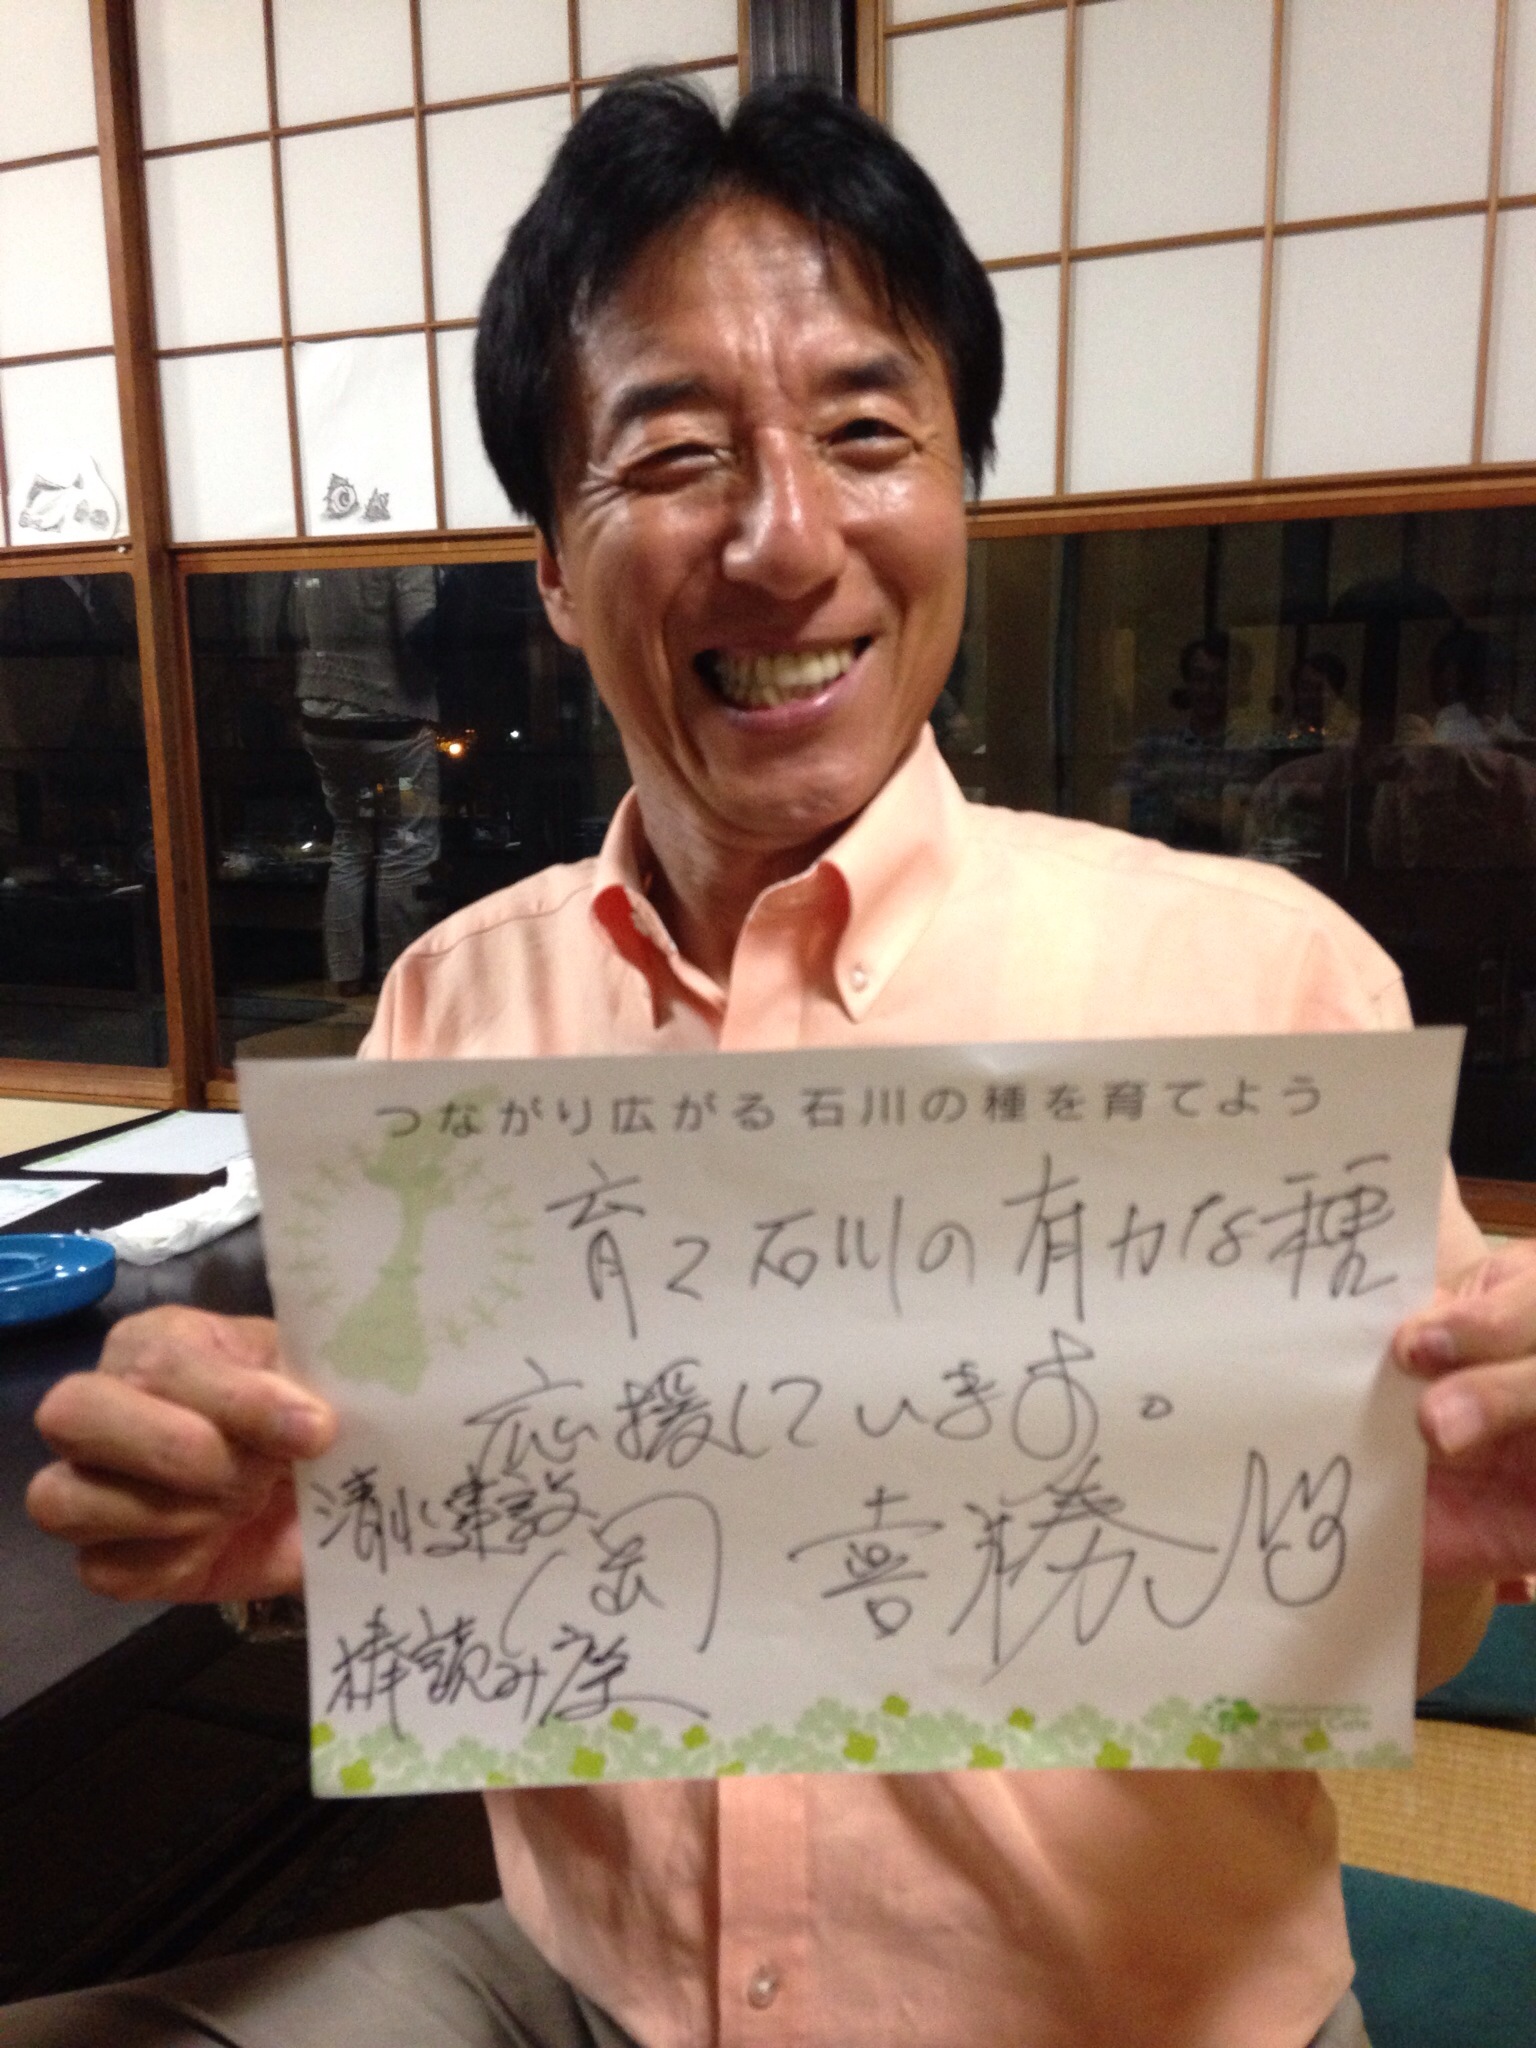 つながり広がる 石川の種を育てよう
育て石川の有力な種
応援しています。
清水建設
岡 喜勝
棒読み座